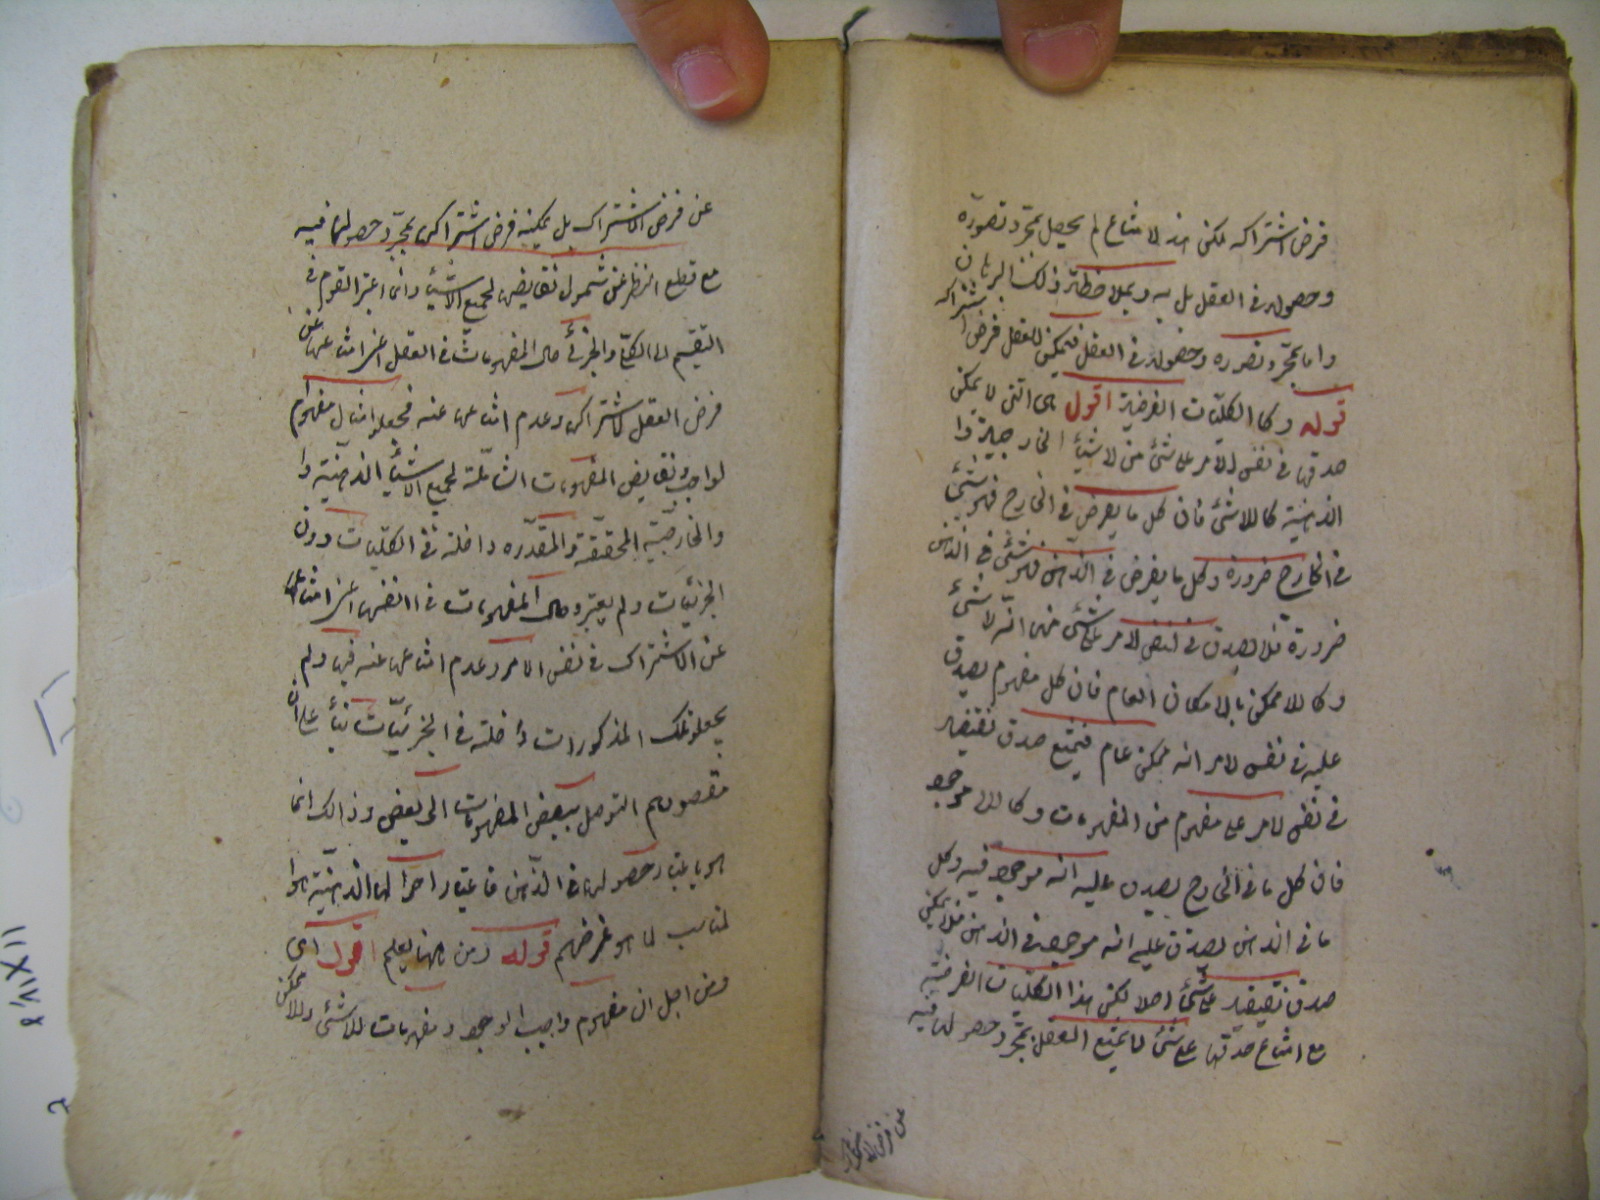 فرض اشتراكه لكن هذا الامتناع لم يحصل بمجرد تصوره
وحصوله في العقل بل به وبملاحظة ذلك البرهان
واما بمجرد تصوره وحصوله في العقل فيمكن للعقل فرض اشتراكه
قوله وكالكليات الفرضية اقول اى التى لا يمكن
صدقها في نفس الامر على شئ من الاشياء الخارجية وا
الذهنية كاللاشئ فان كل ما يفرض في الخارج فهو شئ
في الخارج ضرورة وكل ما يفرض في الذهن فهو شئ في الذهن
ضرورة فلا يصدق في نفس الامر على شئ منها انه لاشئ
وكاللاممكن بالامكان العام فان كل مفهوم يصدق
عليه في نفس الامر انه ممكن عام فيمتنع صدق نقيضه
في نفس الامر على مفهوم من المفهومات وكاللاموجود
فان كل ما في الخارج يصدق عليه انه موجود فيه وكل
ما في الذهن يصدق عليه انه موجود في الذهن فلا يمكن
صدق نقيضه على شئ اصلا لكن هذا الكليات الفرضية
مع امتناع صدقها على شئ لا يمتنع العقل بمجرد حصولها فيه
عن فرض الاشتراك
عن فرض الاشتراك بل يمكنه فرض اشتراكها بمجرد حصولها فيه
مع قطع النظر عن شمول نقايضها لجميع الاشياء وانما اعتبر القوم في
التقسيم الى الكلي والجزئي حال المفهومات في العقل اعنى امتناعها عن
فرض العقل لاشتراكها وعدم امتناعها عنه فجعلوا امثال مفهوم
لواجب ونقايض المفهومات الشاملة لجميع الاشياء الذهنية وا
والخارجية المحققة والمقدره داخلة في الكليات دون
الجزئيات ولم يعتبروا حال المفهومات في انفسها اعنى امتناعها
عن الاشتراك في نفس الامر وعدم امتناعها عنه فيها ولم
يجعلوا تلك المذكورات داخلة في الجزئيات بناء على ان
مقصودهم التوصل ببعض المفهومات الى بعض وذالك انما
هو باعتبار حصولها في الذهن فاعتبار احوالها الذهنية هو ا
لمناسب لما هو غرضهم قوله ومن ههنا يعلم اقول اى
ومن اجل ان مفهوم واجب الوجود ومفهومات اللاشئ واللاممكن